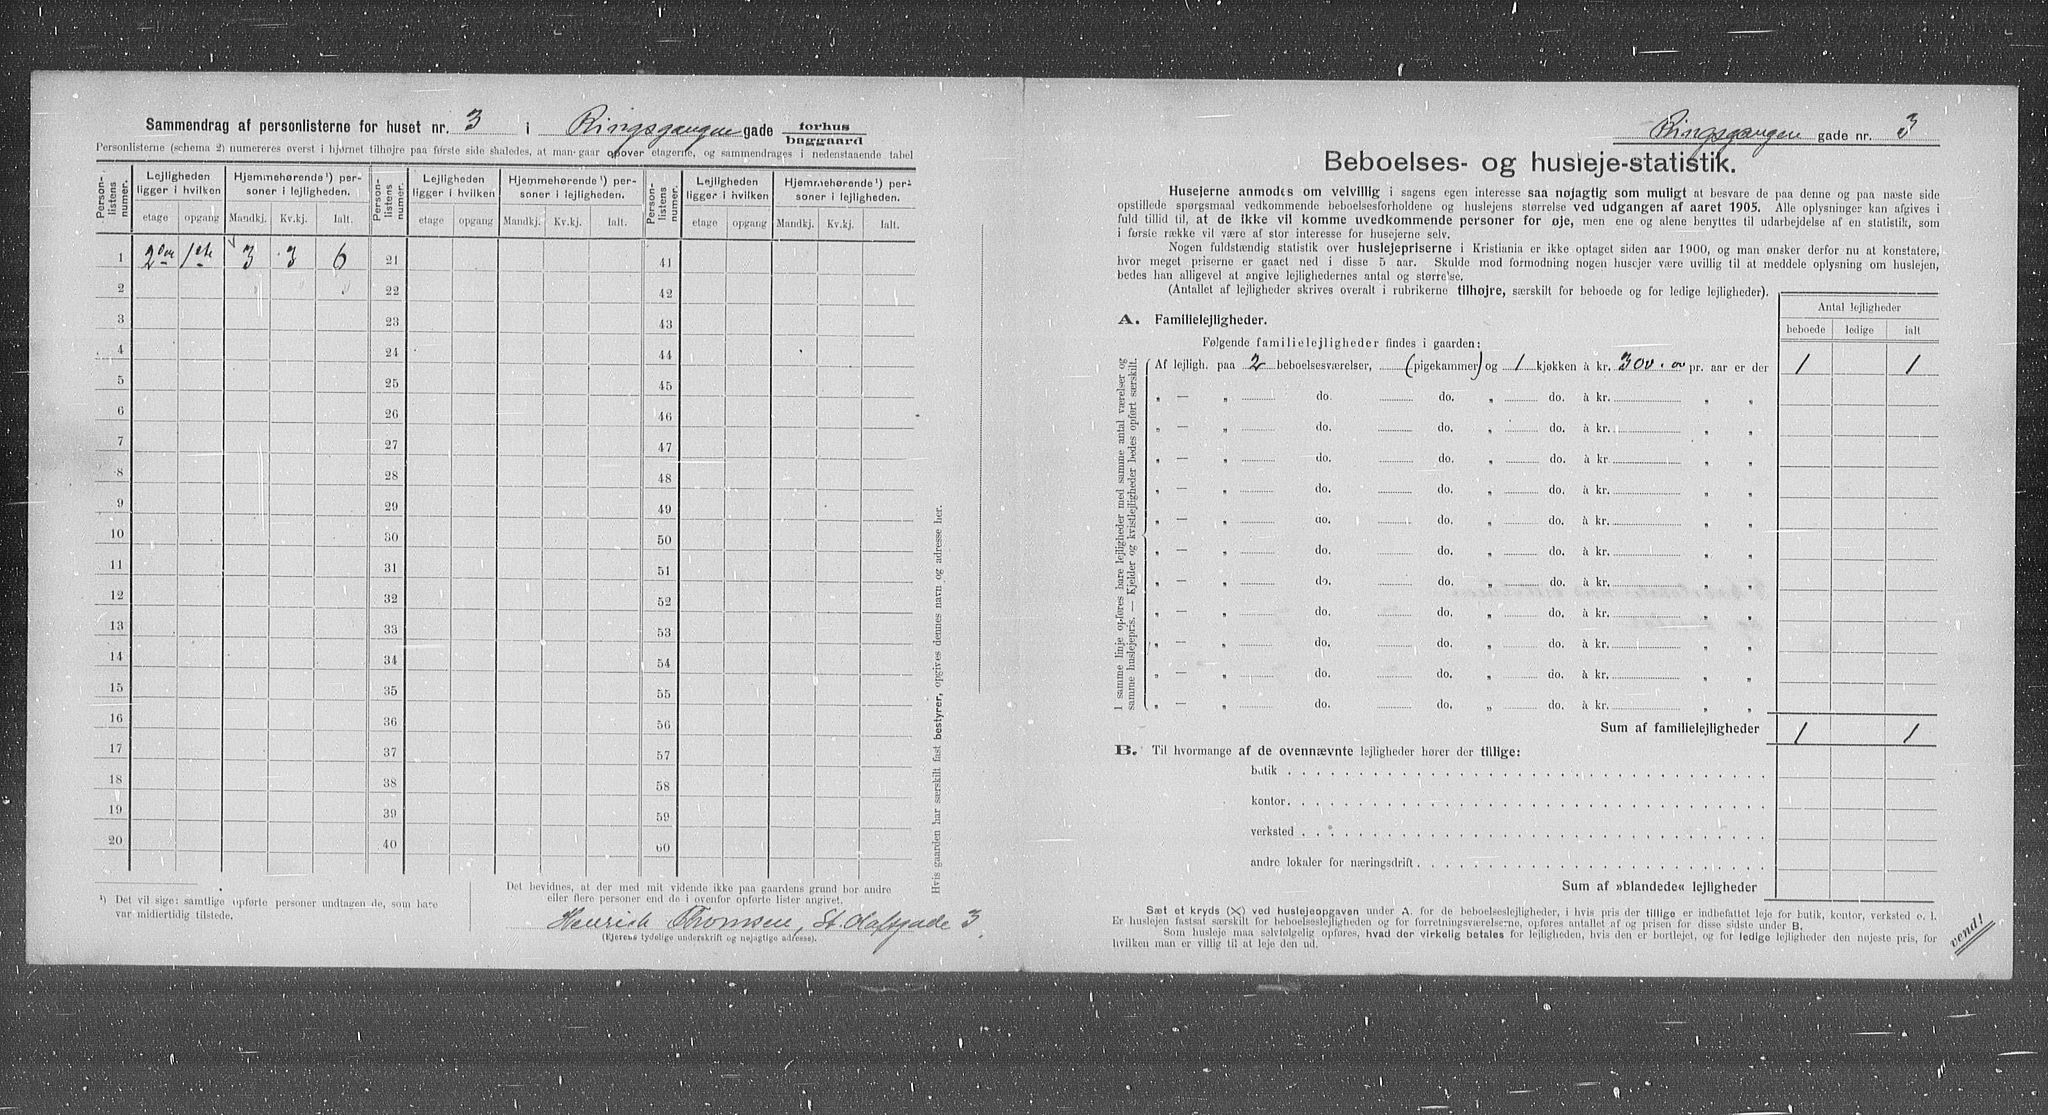 Sammendrag af personlisterne for huset nr. 3 i Ringsgangen gade forhus
baggaard
Personlisterne (schema 2) numereres øverst i hjørnet tilhøjre paa første side shaledes, at man gaar opover etagerne, og sammendrages i nedenstaaende tabel
Person-listens numer. Lejligheden ligger i hvilken Hjemmehørende¹) personer i lejligheden. Person-listens numer. Lejligheden ligger i hvilken Hjemmehørende¹) personer i lejligheden. Person-listens numer. Lejligheden ligger i hvilken Hjemmehørende¹) personer i lejligheden.
etage opgang Mandkj. Kv.kj. Ialt. etage opgang Mandkj. Kv.kj. Ialt. etage opgang Mandkj. Kv.kj. Ialt.
1 3 3 6 21 41
2 22 42
3 23 43
4 24 44
5 25 45
6 26 46
7 27 47
8 28 48
9 29 49
10 30 50
11 31 51
12 32 52
13 33 53
14 34 54
15 35 55
16 36 56
17 37 57
18 38 58
19 39 59
20 40 60
¹) Det vil sige: samtlige opførte personer undtagen de, som bare
var midlertidig tilstede.
Det bevidnes, at der med mit vidende ikke paa gaardens grund bor andre
eller flere personer end de i ovenfor opførte lister angivet.
Henrich Thomsen, St. Olafsgade 3.
(Ejerens tydelige underskrift og nøjagtige adresse).
Hvis gaarden har særskilt fast bestyrer, opgives dennes navn og adresse her.
Ringsgangen gade nr. 3
Beboelses- og husleje-statistik.
Husejerne anmodes om velvillig i sagens egen interesse saa nøjagtig som muligt at besvare de paa denne og paa næste side
opstillede spørgsmaal vedkommende beboelsesforholdene og huslejens størrelse ved udgangen af aaret 1905. Alle oplysninger kan afgives i
fuld tillid til, at de ikke vil komme uvedkommende personer for øje, men ene og alene benyttes til udarbejdelse af en statistik, som
i første række vil være af stor interesse for husejerne selv.
Nogen fuldstændig statistik over huslejepriserne i Kristiania er ikke optaget siden aar 1900, og man ønsker derfor nu at konstatere,
hvor meget priserne er gaaet ned i disse 5 aar. Skulde mod formodning nogen husejer være uvillig til at meddele oplysning om huslejen,
bedes han alligevel at angive lejlighedernes antal og størrelse.
(Antallet af lejligheder skrives overalt i rubrikerne tilhøjre, særskilt for beboede og for ledige lejligheder).
Antal lejligheder
beboede ledige ialt
A. Familielejligheder.
Følgende familielejligheder findes i gaarden:
Af lejligh. paa 2 beboelsesværelser, (pigekammer) og 1 kjøkken à kr. 300.00 pr. aar er der 1 1
„ — „ do. do. „ do. à kr. „ „
„ — „ do. do. „ do. à kr. „ „
„ — „ do. do. „ do. à kr. „ „
„ — „ do. do. „ do. à kr. „ „
„ — „ do. do. „ do. à kr. „ „
„ — „ do. do. „ do. à kr. „ „
„ — „ do. do. „ do. à kr. „ „
„ — „ do. do. „ do. à kr. „ „
„ — „ do. do. „ do. à kr. „ „
„ — „ do. do. „ do. à kr. „ „
„ — „ do. do. „ do. à kr. „ „
I samme linje opføres bare lejligheder med samme antal værelser og
samme huslejepris. — Kjelder og kvistlejligheder bedes opført særskilt.
Sum af familielejligheder 1 1
B. Til hvormange af de ovennævnte lejligheder hører der tillige:
butik
kontor
verksted
andre lokaler for næringsdrift
Sum af »blandede« lejligheder
Sæt et kryds (X) ved huslejeopgaven under A. for de beboelseslejligheder, i hvis pris der tillige er indbefattet leje for butik, kontor, verksted o. l.
Er huslejen fastsat særskilt for beboelseslejligheden og for forretningsværelserne, opføres antallet af og prisen for disse sidste under B.
Som husleje maa selvfølgelig opføres, hvad der virkelig betales for lejligheden, hvis den er bortlejet, og for ledige lejligheder den nøjeste pris, for
hvilken man er villig til at leje den ud.
vend!